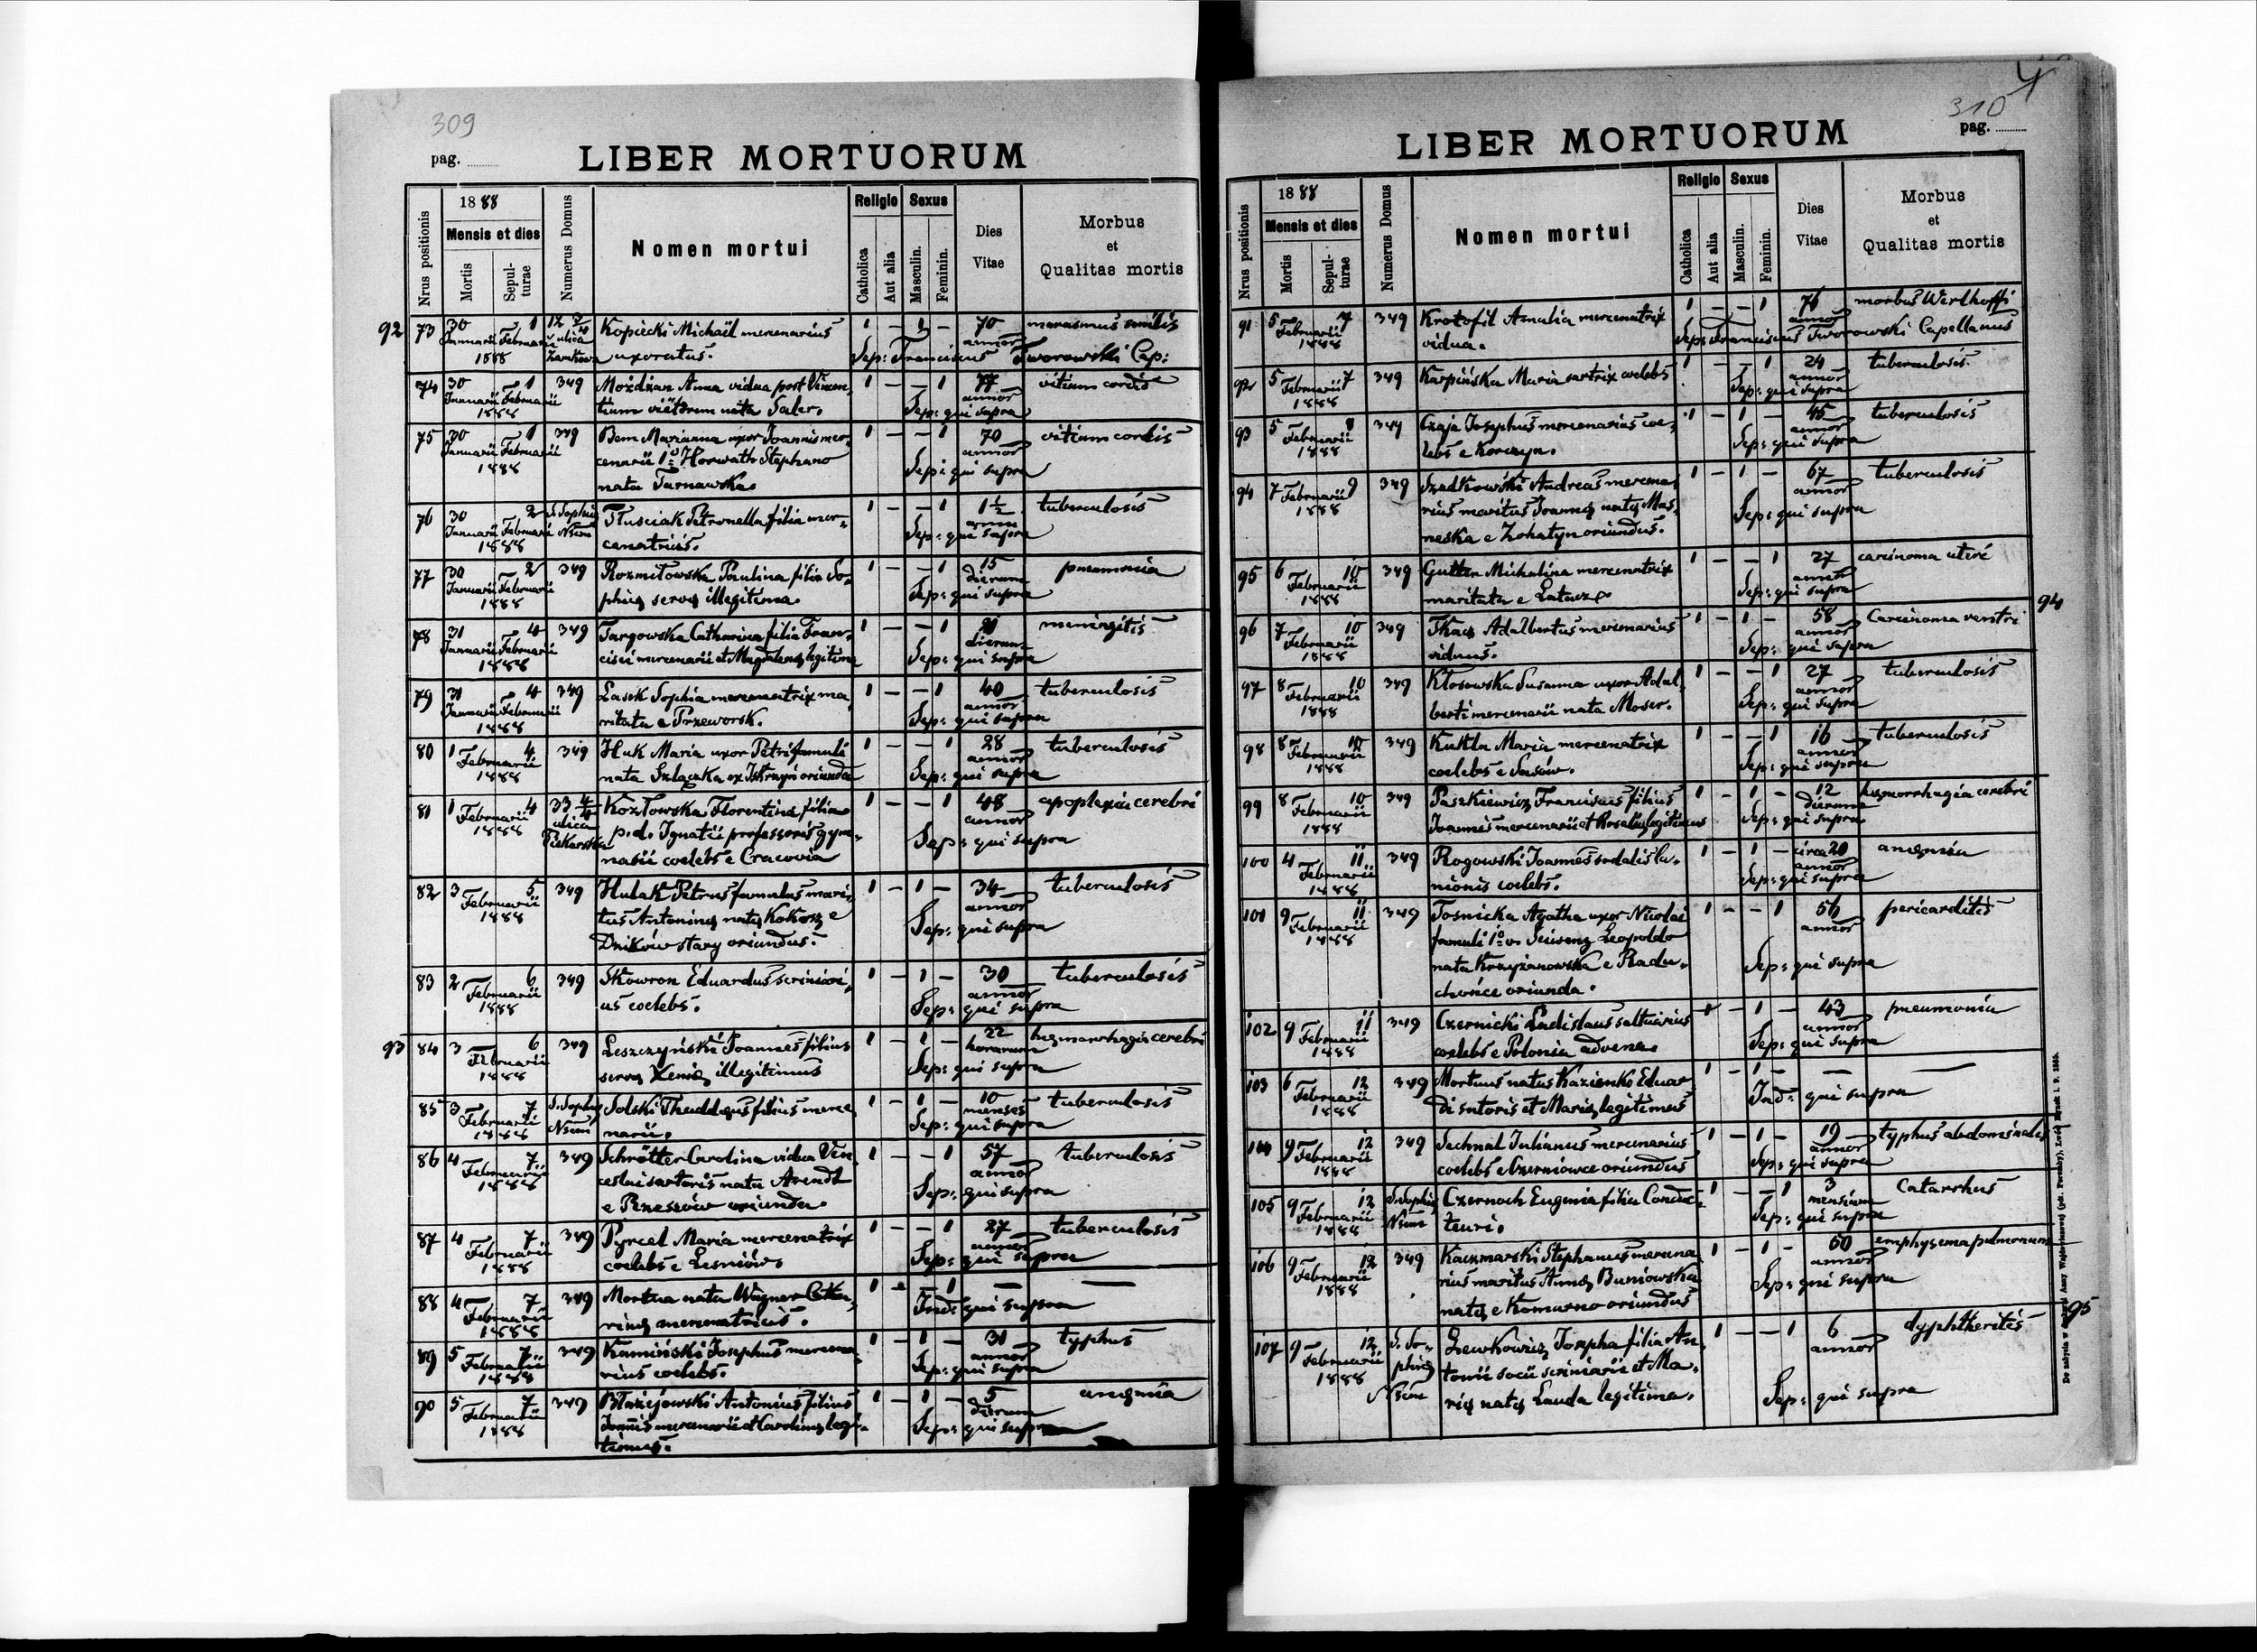 309
pag.
LIBER MORTUORUM
Nrus positionis
1888
Mensis et dies
Mortis
Sepulturae
Numerus Domus
Nomen mortui
Religio
Catholica
Aut alia
Sexus
Masculin.
Feminin.
Dies Vitae
Morbus et Qualitas mortis
92 73 30 Januarii 1 Februarii 1888 ulica Zamkowa Kopiecki Michaël mercenarius 1 - 1 - 70 annor marasmus senilis
uxoratus. Sep: Franciscus Tworowski Cap:
74 30 Januarii 1 Februarii 1888 349 Możdżan Anna vidua post Vincen-
tium nata Saler. 1 - - 1 77 annor vitium cordis
Sep: qui supra
75 30 Januarii 1 Februarii 1888 349 Bem Marianna uxor Joannis mer-
cenarii 1º Horwath Stephano
nata Tarnawska 1 - - 1 70 annor vitium cordis
Sep: qui supra
76 30 Januarii 2 Februarii 1888 S. Sophia Tłuściak Petronella filia mer-
cenatricis. 1 - - 1 1½ tuberculosis
Sep: qui supra
77 30 Januarii 2 Februarii 1888 349 Rozmiłowska Paulina filia So-
phię servę illegitima. 1 - - 1 15 dierum pneumonia
Sep: qui supra
78 31 Januarii 4 Februarii 1888 349 Targowska Catharina filia Fran-
cisci mercenarii et Magdalenę legitima 1 - - 1 dierum meningitis
Sep: qui supra
79 31 Januarii 4 Februarii 1888 349 Lasek Sophia mercenatrix ma-
ritata e Przeworsk. 1 - - 1 40 annor tuberculosis
Sep: qui supra
80 1 4 Februarii 1888 349 Huk Maria uxor Petri famuli
nata oriunda 1 - - 1 28 annor tuberculosis
Sep: qui supra
81 1 4 Februarii 1888 33 4/4 ulica Piekarska Kozłowska Florentina filia
p. d. Ignatii professoris gym-
nasii coelebs e Cracovia 1 - - 1 48 annor apoplexia cerebri
Sep: qui supra
82 3 5 Februarii 1888 349 Hulak Petrus famulus mari-
tus Antoninę natę Kokosz e
Dzików stary oriundus. 1 - 1 - 34 annor tuberculosis
Sep: qui supra
83 2 6 Februarii 1888 349 Skowron Eduardus scriniari-
us coelebs. 1 - 1 - 30 annor tuberculosis
Sep: qui supra
93 84 3 6 Februarii 1888 349 Leszczyński Joannes filius
servę Xenię illegitimus 1 - 1 - 22 horarum hęmorrhagia cerebri
Sep: qui supra
85 3 7 Februarii 1888 S. Sophię Nsum Solski Thaddęus filius merce-
narii. 1 - 1 - 10 menses tuberculosis
Sep: qui supra
86 4 7 Februarii 1888 349 Schrötter Carolina vidua Ven-
ceslai sartoris nata Arendt
e Rzeszów oriunda. 1 - - 1 57 annor tuberculosis
Sep: qui supra
87 4 7 Februarii 1888 349 Pyrcel Maria mercenatrix
coelebs e Leśniów. 1 - - 1 27 annor tuberculosis
Sep: qui supra
88 4 7 Februarii 1888 349 Mortua nata Wagner Catha-
rinę mercenatricis. 1 - 1 — —
Ind: qui supra
89 5 7 Februarii 1888 349 Kamiński Josephus mercena-
rius coelebs. 1 - 1 - 31 annor typhus
Sep: qui supra
90 5 7 Februarii 1888 349 Błażejowski Antonius filius
Joannis mercenarii et Carolinę legi-
timus. 1 - 1 - 5 dierum anęmia
Sep: qui supra
310
pag.
LIBER MORTUORUM
Nrus positionis
1888
Mensis et dies
Mortis
Sepulturae
Numerus Domus
Nomen mortui
Religio
Catholica
Aut alia
Sexus
Masculin.
Feminin.
Dies Vitae
Morbus et Qualitas mortis
91 5 7 Februarii 1888 349 Krotofil Amalia mercenatrix
vidua. 1 - - 1 76 annor morbus Werlhoffi
Sep: Franciscus Tworowski Capellanus
92 5 7 Februarii 1888 349 Karpińska Maria sartrix coelebs 1 - - 1 24 annor tuberculosis
Sep: qui supra
93 5 8 Februarii 1888 349 Czaja Josephus mercenarius coe-
lebs e Korczyn. 1 - 1 - 45 annor tuberculosis
Sep: qui supra
94 7 9 Februarii 1888 349 Szadkowski Andreas mercena-
rius maritus Joannę natę Mas-
neska e Zohatyn oriundus. 1 - 1 - 67 annor tuberculosis
Sep: qui supra
95 6 10 Februarii 1888 349 Gutter Michalina mercenatrix
maritata e 1 - - 1 27 annor carcinoma uteri
Sep: qui supra
94
96 7 10 Februarii 1888 349 Tkacz Adalbertus mercenarius
viduus. 1 - 1 - 58 annor Carcinoma ventri
Sep: qui supra
97 8 10 Februarii 1888 349 Kłosowska Susanna uxor Adal-
berti mercenarii nata Moser. 1 - - 1 27 annor tuberculosis
Sep: qui supra
98 8 10 Februarii 1888 349 Kukla Maria mercenatrix
coelebs e Sasów. 1 - - 1 16 annor tuberculosis
Sep: qui supra
99 8 10 Februarii 1888 349 Paszkiewicz Franciscus filius
Joannis mercenarii et Rosalię legitimus 1 - 1 - 12 dierum hęmorrhagia cerebri
Sep: qui supra
100 4 11 Februarii 1888 349 Rogowski Joannes sodalis la-
nionis coelebs. 1 - 1 - circa 20 annor anęmia
Sep: qui supra
101 9 11 Februarii 1888 349 Tosnicka Agatha uxor Nicolai
famuli 1º v. Leopoldo
nata Krzyżanowska e Radu-
chońce oriunda. 1 - - 1 56 annor pericarditis
Sep: qui supra
102 9 11 Februarii 1888 349 Czernicki Ladislaus saltuarius
coelebs e Polonia advena 1 - 1 - 43 annor pneumonia
Sep: qui supra
103 6 12 Februarii 1888 349 Mortuus natus Kazienko Eduar-
di sutoris et Marię legitimus 1 - 1 - — —
Ind: qui supra
104 9 12 Februarii 1888 349 Sechnal Julianus mercenarius
coelebs e Czerniowce oriundus 1 - 1 - 19 annor typhus abdominalis
Sep: qui supra
105 9 12 Februarii 1888 S. Sophię Nsum Czernoch Eugenia filia Conduc-
teuri. 1 - - 1 3 mensium Catarrhus
Sep: qui supra
106 9 12 Februarii 1888 349 Kaczmarski Stephanus mercena-
rius maritus Annę Buniowska
natę e Komarno oriundus 1 - 1 - 60 annor emphysema pulmonum
Sep: qui supra
95
107 9 12 Februarii 1888 S. So-
phię Nsum Lewkowicz Josepha filia An-
tonii socii scriniarii et Ma-
rię natę Lauda legitima. 1 - - 1 6 annor dyphtheritis
Sep: qui supra